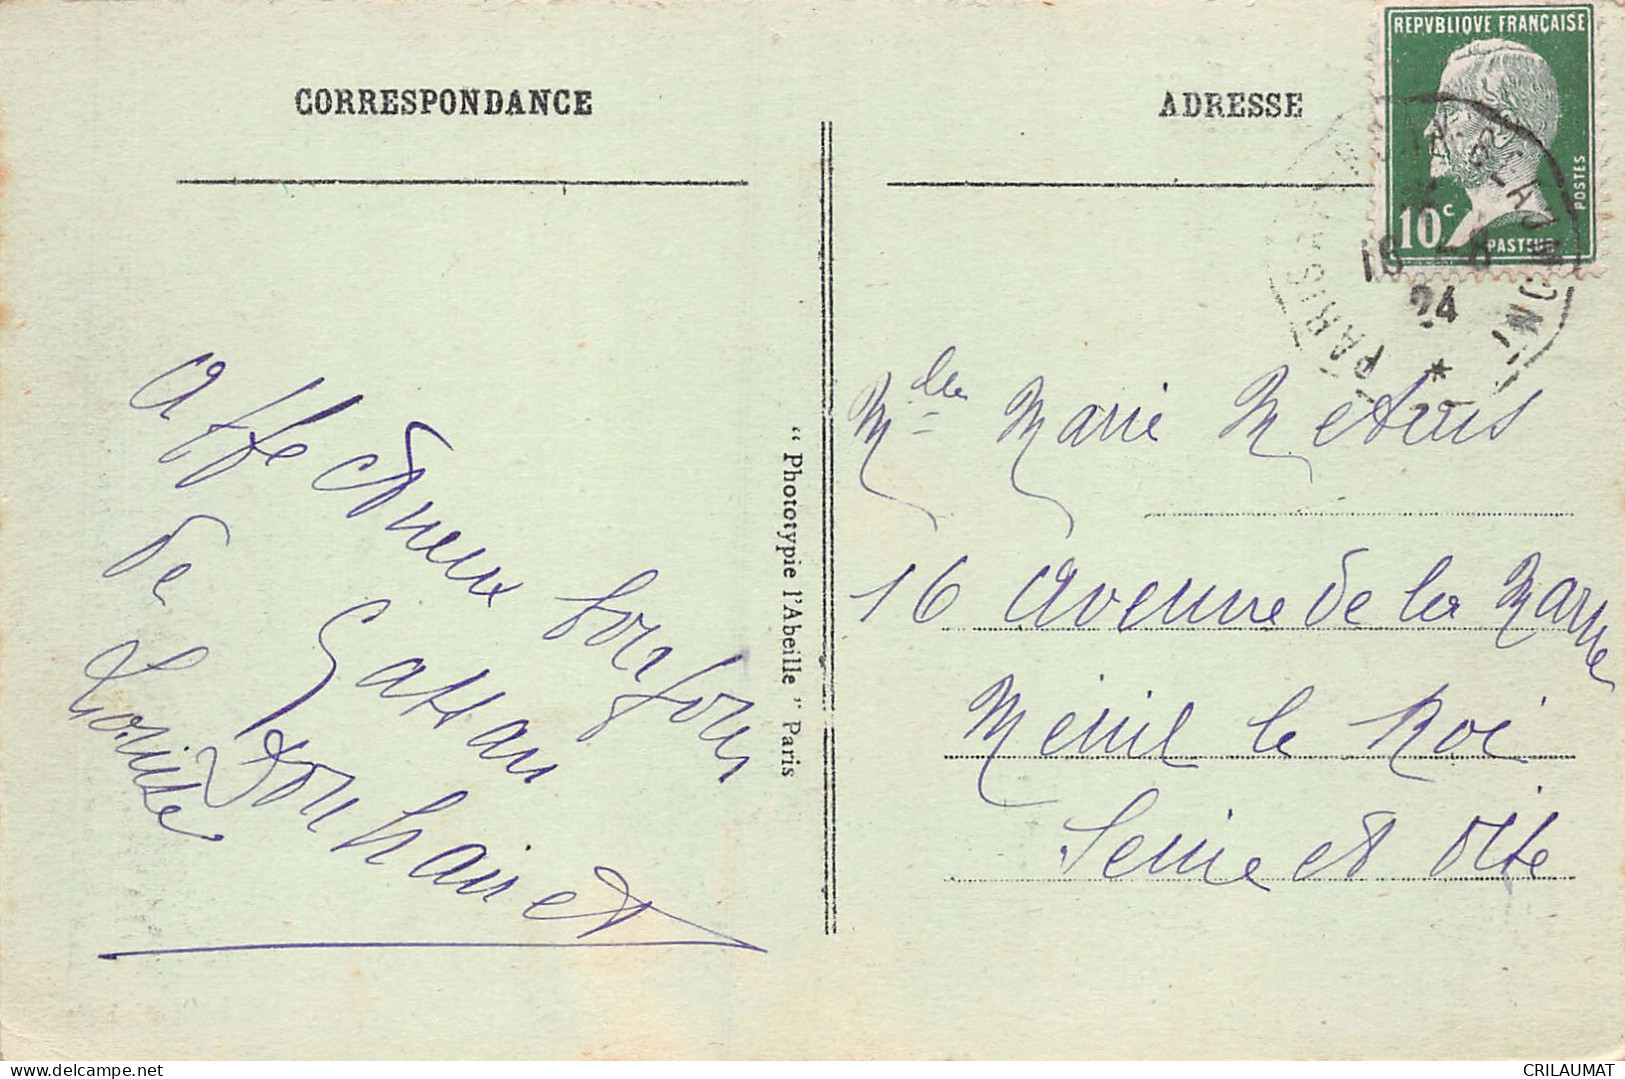 CORRESPONDANCE
Affectueux bonjour
de Gattan
Louise Douhairet
" Photoypie l'Abeille " Paris
ADRESSE
REPVBLIQVE FRANÇAISE
POSTES
10c
PASTEUR
PARIS
16 -8
24
*
Mlle Marie
16 Avenue de la Marne
Menil le Roi
Seine et Oise
CRILAUMAT